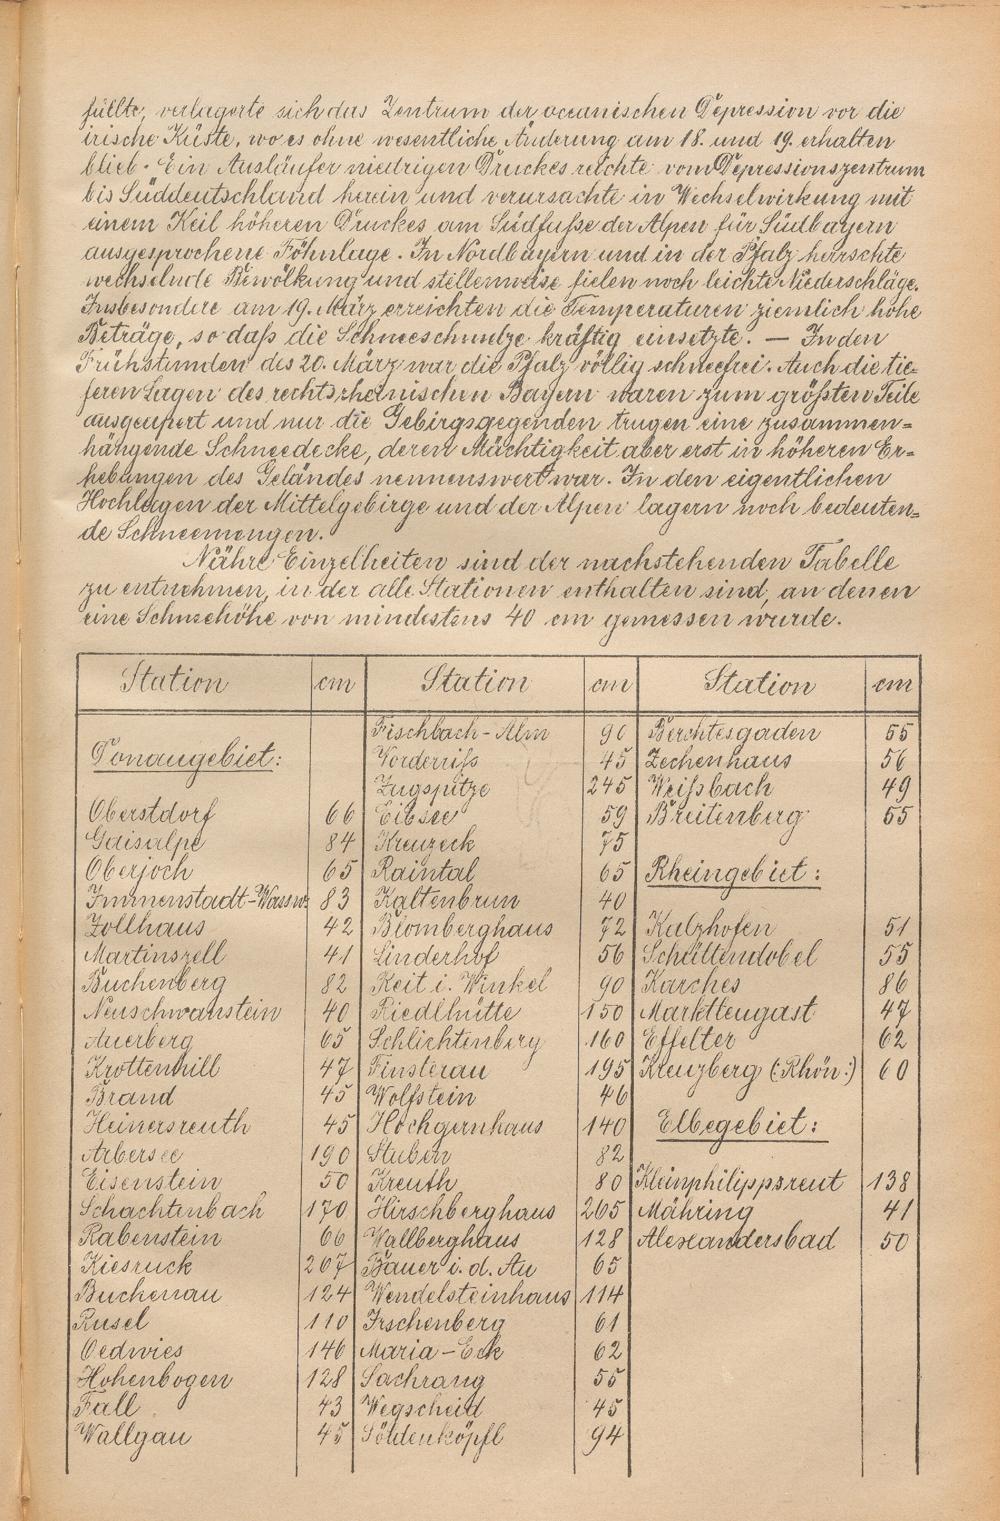 füllte, verlagerte sich das Zentrum der oceanischen Depression vor die
irische Küste, wo es ohne wesentliche Änderung am 18. und 19. erhalten
blieb. Ein Ausläufer niedrigen Druckes reichte vom Depressionszentrum
bis Süddeutschland herein und verursachte in Wechselwirkung mit
einem Keil höheren Druckes am Südfuße der Alpen für Südbayern
ausgesprochene Föhnlage. In Nordbayern und in der Pfalz herrschte
wechselnde Bewölkung und stellenweise fielen noch leichte Niederschläge.
Insbesondere am 19. März erreichten die Temperaturen ziemlich hohe
Beträge, so daß die Schneeschmelze kräftig einsetzte. — In den
Frühstunden des 20. März war die Pfalz völlig schneefrei. Auch die tie=
feren Lagen des rechtsrheinischen Bayern waren zum größten Teile
ausgeapert und nur die Gebirgsgegenden trugen eine zusammen=
hängende Schneedecke, deren Mächtigkeit aber erst in höheren Er=
hebungen des Geländes nennenswert war. In den eigentlichen
Hochlagen der Mittelgebirge und der Alpen lagern noch bedeuten=
de Schneemengen.
Nähre Einzelheiten sind der nachstehenden Tabelle
zu entnehmen, in der alle Stationen enthalten sind, an denen
eine Schneehöhe von mindestens 40 cm gemessen wurde.
Station cm Station cm Station cm
Fischbach-Alm 90 Berchtesgaden 55
Donaugebiet: Vorderriß 45 Zechenhaus 56
Zugspitze 245 Weißbach 49
Oberstdorf 66 Eibsee 59 Breitenberg 55
Gaisalpe 84 Kreuzeck 75
Oberjoch 65 Raintal 65 Rheingebiet:
Immenstadt-Wasserw. 83 Kaltenbrun 40
Zollhaus 42 Blomberghaus 72 Kalzhofen 51
Martinszell 41 Linderhof 56 Schüttendobel 55
Buchenberg 82 Reit i. Winkel 90 Karches 86
Neuschwanstein 40 Riedlhütte 150 Marktteugast 47
Auerberg 65 Schlichtenberg 160 Effelter 62
Krottenmill 47 Finsterau 195 Kreuzberg (:Rhön:) 60
Brand 45 Wolfstein 46
Heinersreuth 45 Hochgernhaus 140 Elbegebiet:
Arbersee 190 Stuben 82
Eisenstein 50 Kreuth 80 Kleinphilippsreut 138
Schachtenbach 170 Hirschberghaus 265 Mähring 41
Rabenstein 66 Wallberghaus 128 Alexandersbad 50
Kiesruck 267 Bauer i. d. Au 65
Buchenau 124 Wendelsteinhaus 114
Rusel 110 Irschenberg 61
Oedwies 146 Maria-Eck 62
Hohenbogen 128 Sachrang 55
Fall 43 Wegscheid 45
Wallgau 45 Söldenköpfl 94